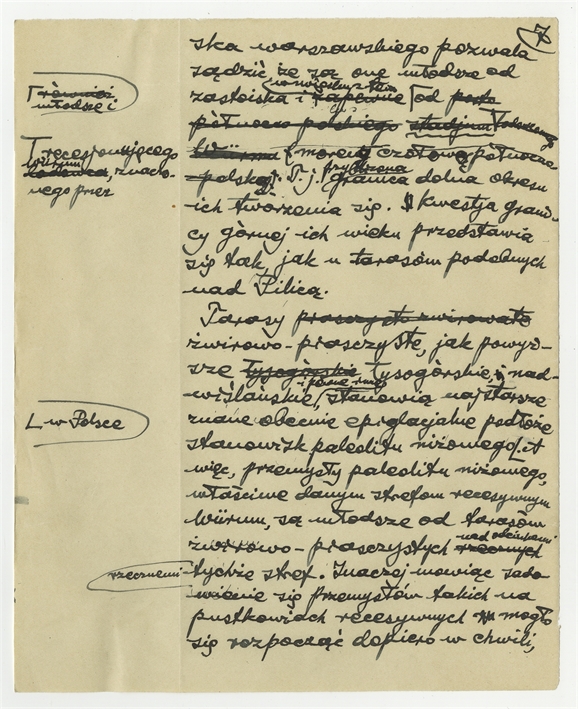 7
ska warszawskiego pozwala
sądzić że są one młodsze od
zastoiska i zapewne od
północno polskiego stadjum
Würmu moreną czołową północno
polską. T. j. granica dolna okresu
ich tworzenia się. kwestja grani-
cy górnej ich wieku przedstawia
się tak, jak u tarasów podobnych
nad Pilicą.
Tarasy piaszczysto żwirowate
żwirowo-piaszczyste, jak powyż-
sze łysogórskie łysogórskie, nad-
wiślańskie, stanowią najstarsze
znane obecnie epiglacjalne podłoże
stanowisk paleolitu niżowego. A
więc, przemysły paleolitu niżowego,
właściwe danym strefom recesywnym
Würmu, są młodsze od tarasów
nad odcinkami
żwirowo-piaszczystych rzecznych
tychże stref. Inaczej mówiąc sado-
wienie się przemysłów takich na
pustkowiach recesywnych mogło
się rozpocząć dopiero w chwili,
również
młodsze i
recesjonującego
Würmu
lodowca, znaczo-
nego przez
w Polsce
rzecznemi